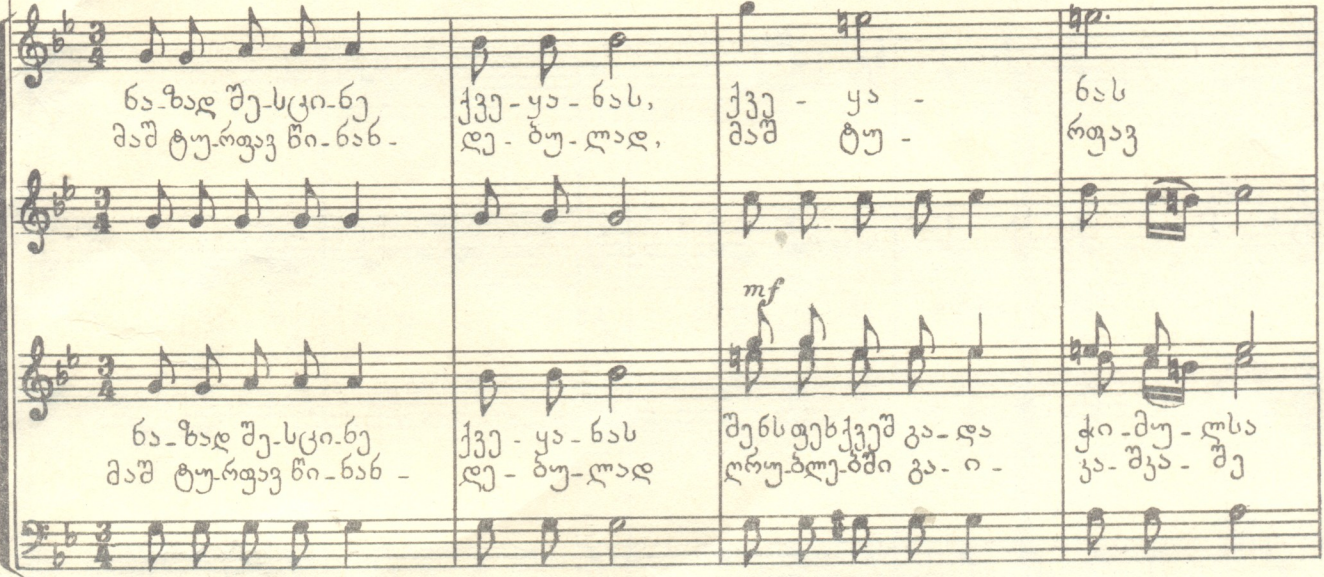 ნა-ზად შე-სცი-ნე ქვე-ყა-ნას, ქვე - ყა - ნას
მაშ ტუ-რფავ წი-ნან- დე-ბუ-ლად, მაშ ტუ - რფავ
mf
ნა-ზად შე-სცი-ნე ქვე-ყა-ნას შენს ფეხქვეშ გა-და ჭი-მუ-ლსა
მაშ ტუ-რფავ წი-ნან- დე-ბუ-ლად ღრუ-ბლებში გა-ი- კა-შკა-შე